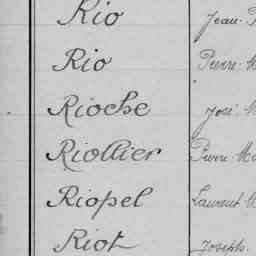 Rio Jean-
Rio Pierre-M
Rioche José M
Riollier Pierre-Ma
Riopel Laurent M
Riot Joseph